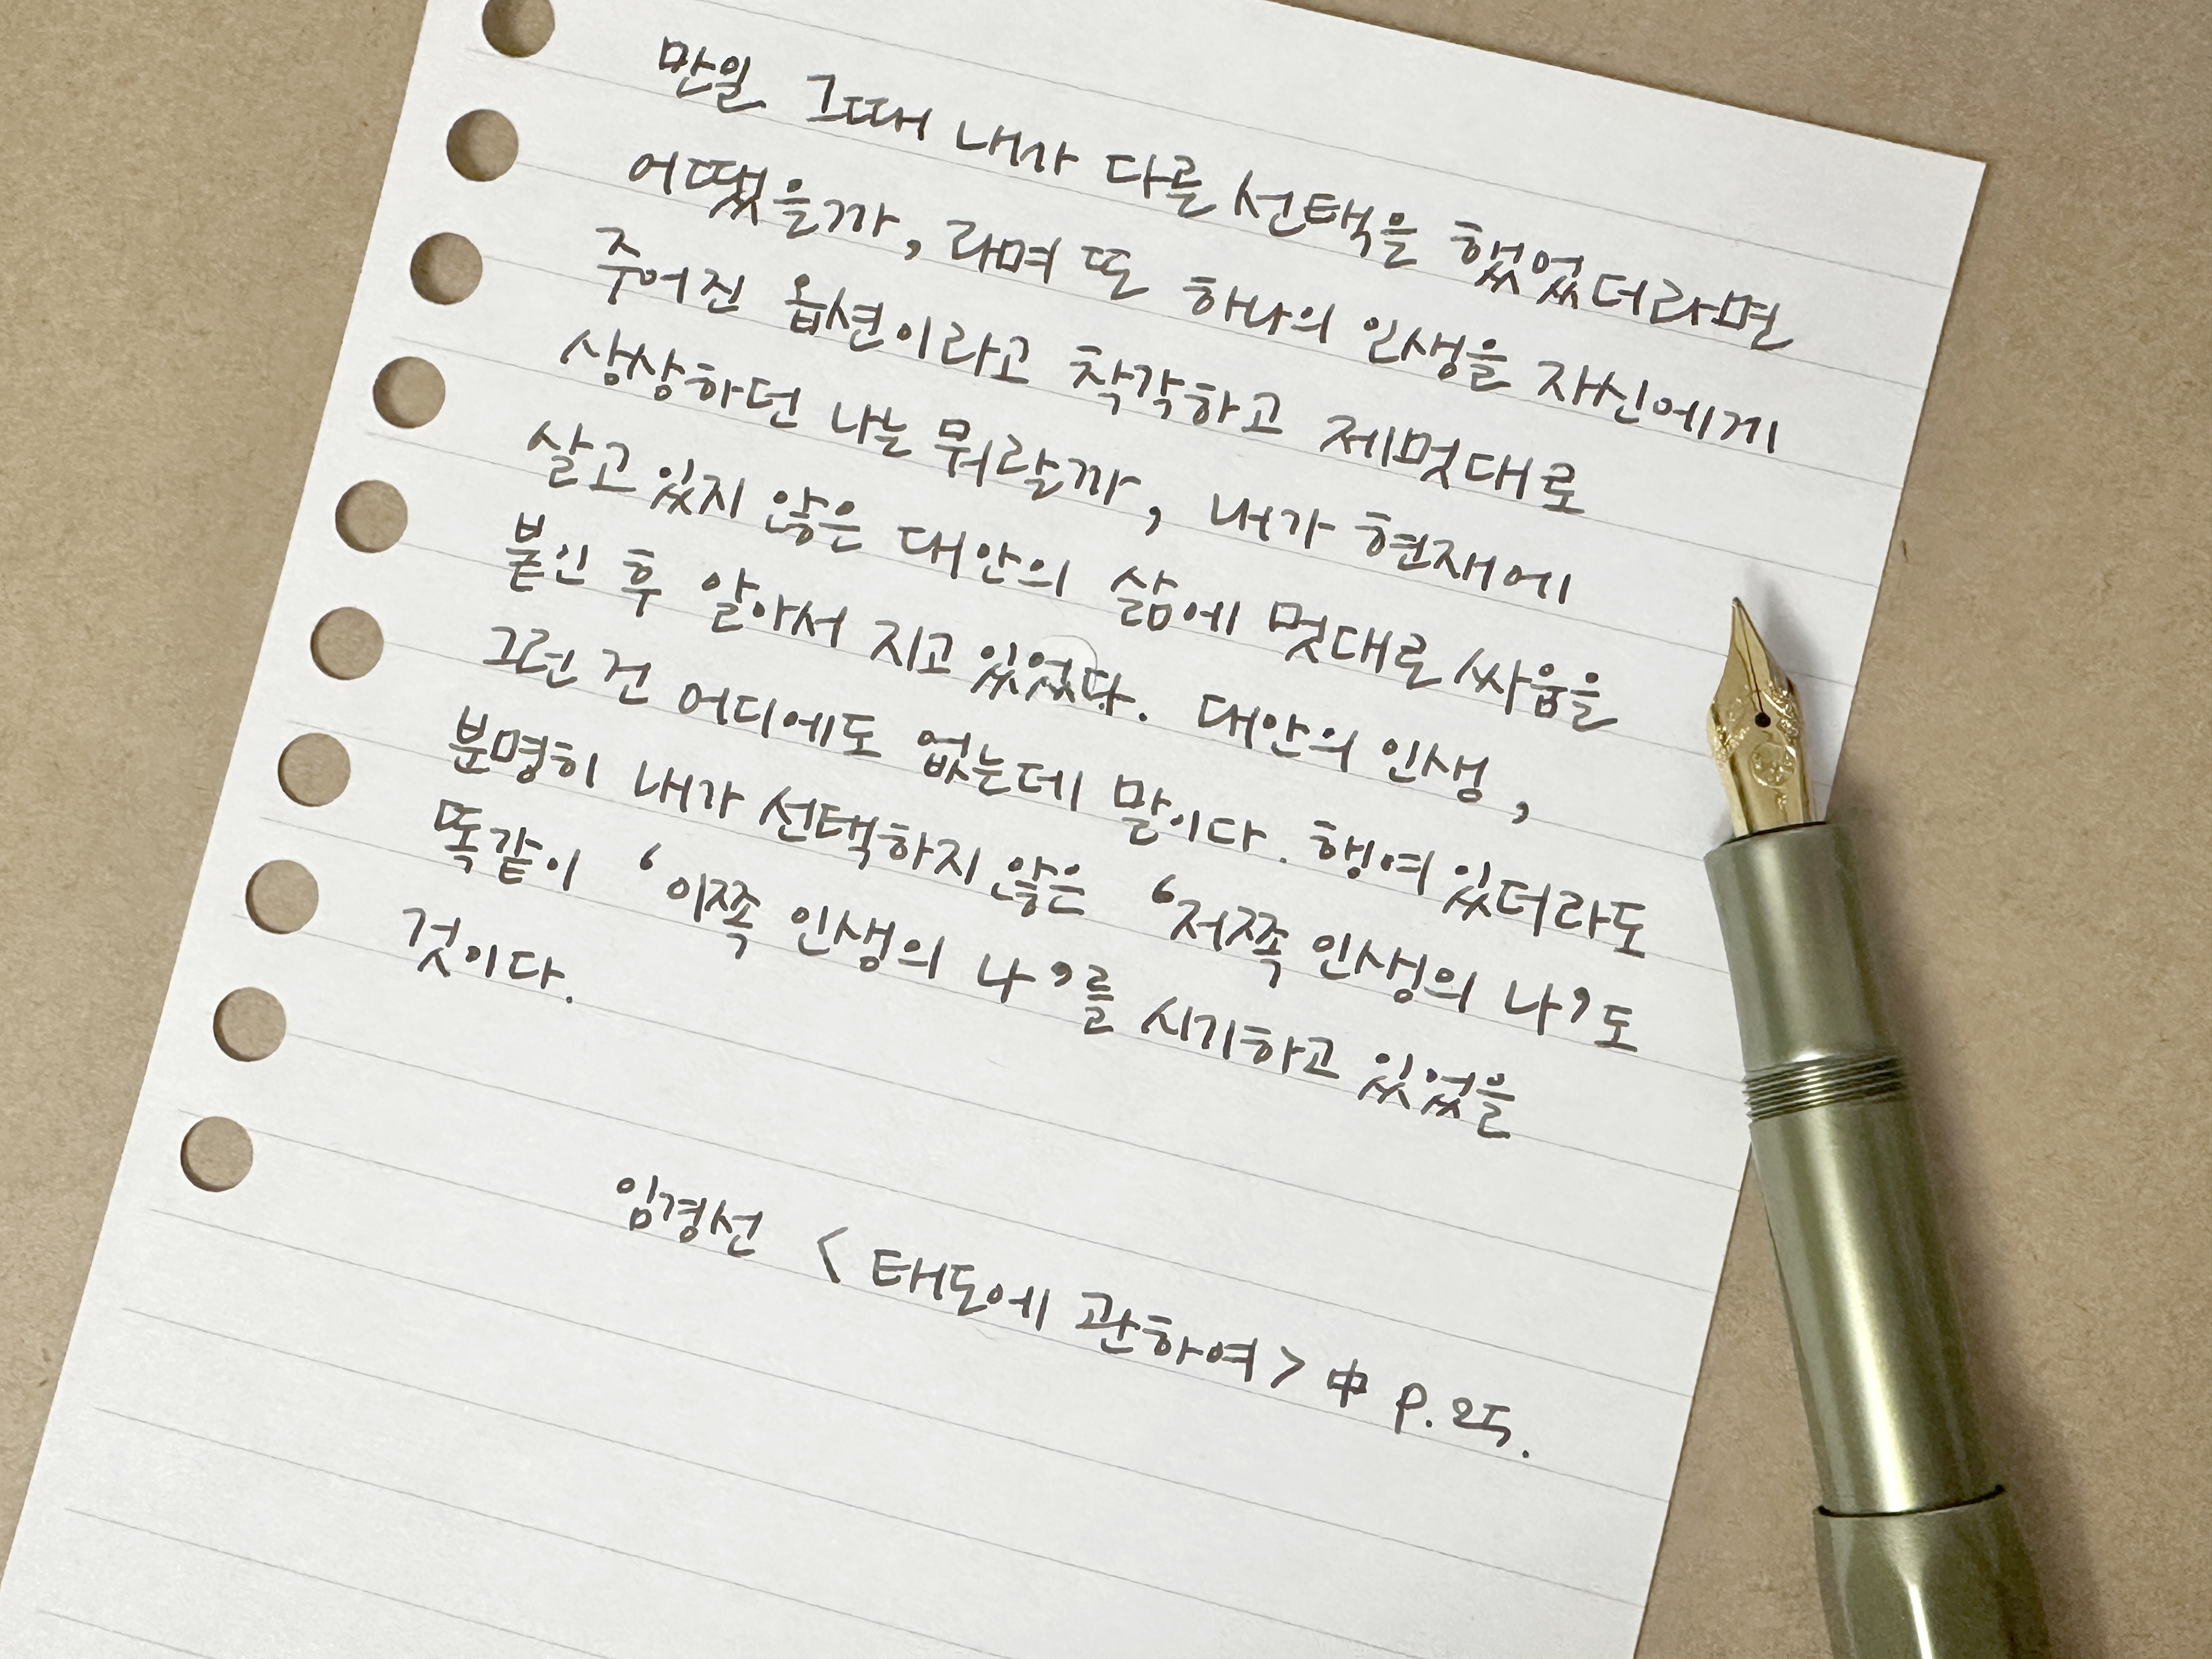 만일 그때 내가 다른 선택을 했었더라면
어땠을까, 라며 또 하나의 인생을 자신에게
주어진 옵션이라고 착각하고 제멋대로
상상하던 나는 뭐랄까, 내가 현재에
살고 있지 않은 대안의 삶에 멋대로 싸움을
붙인 후 알아서 지고 있었다. 대안의 인생,
그런 건 어디에도 없는데 말이다. 행여 있더라도
분명히 내가 선택하지 않은 ‘저쪽 인생의 나’도
똑같이 ‘이쪽 인생의 나’를 시기하고 있었을
것이다.
임경선 <태도에 관하여> 中 p.25.